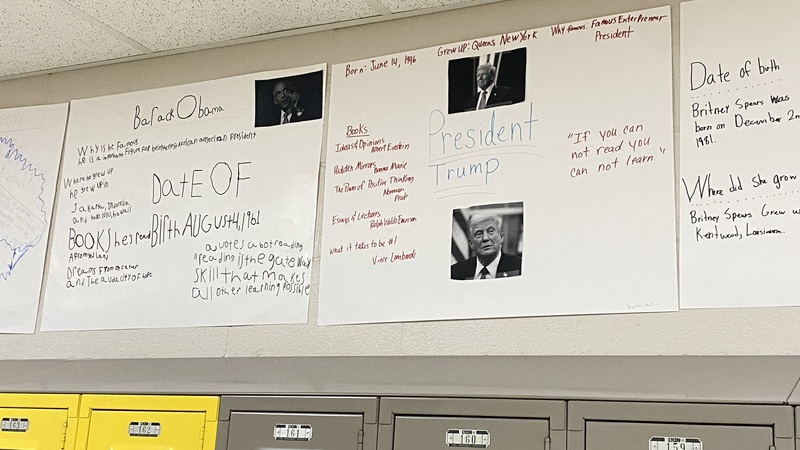 Barack Obama
Why is he Famous
he is a Figure for being african american President
Where he grew up
he grew up in
Jakarta, Indonesia
and Honolulu, hawaii
DatE OF
Birth AUGUST 4, 1961
BOOKS he's read
A Promised Land
Dreams From my Father
and The audacity of hope
a votes abot reading
"reading is the gate way
skill that makes
all other learning Possible
Born: June 14, 1946
Grew up: Queens New York
Why famous: Famous EnterPreneur
President
Books
Ideas & Opinions
Albert Einstein
Hidden Mirrors
Marie
The Power of Positive Thinking
Norman
Essays & Lectures
Ralph Waldo Emerson
What it takes to be #1
Vince Lombardi
President
Trump
"If you can
not read you
can not learn."
Date of birth
Britney Spears was
born on December 2n
1981.
Where did she grow
Britney Spears Grew u
Kentwood, Louisiana.
163
162
161
160
159